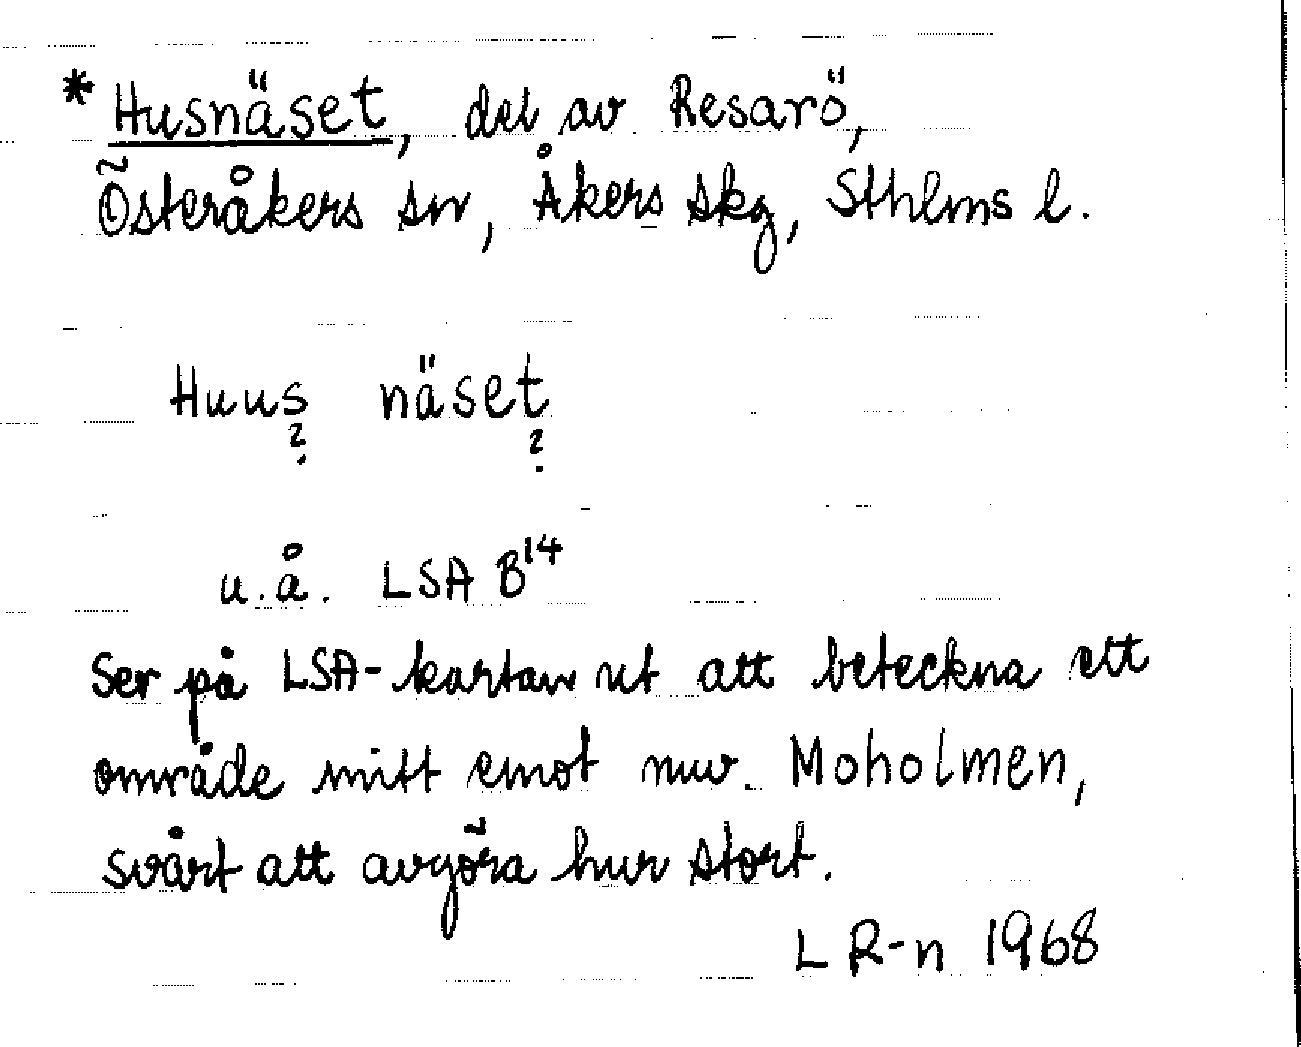 * Husnäset, del av Resarö,
Österåkers sn, Åkers skg, Sthlms l.
Huus näset
? ?
u.å. LSA B14
Ser på LSA-kartan ut att beteckna ett
område mitt emot nuv. Moholmen,
svårt att avgöra hur stort.
L R-n 1968